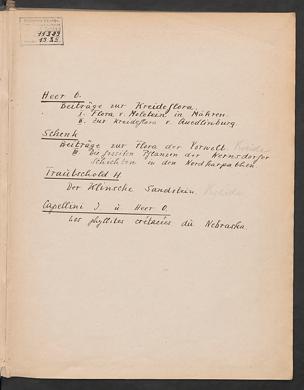 11389
19 35
Heer O.
Beiträge zur Kreideflora.
I. Flora v. Moletein in Mähren.
II. Zur Kreideflora v. Quedlinburg.
Schenk
Beiträge zur Flora der Vorwelt. Kreide
III. Die fossilen Pflanzen der Wernsdorfer
Schichten in den Nordkarpathen
Trautschold H
Der Klinsche Sandstein. Kreide
Capellini J. u Heer O.
Les phyllites crétacées du Nebraska.